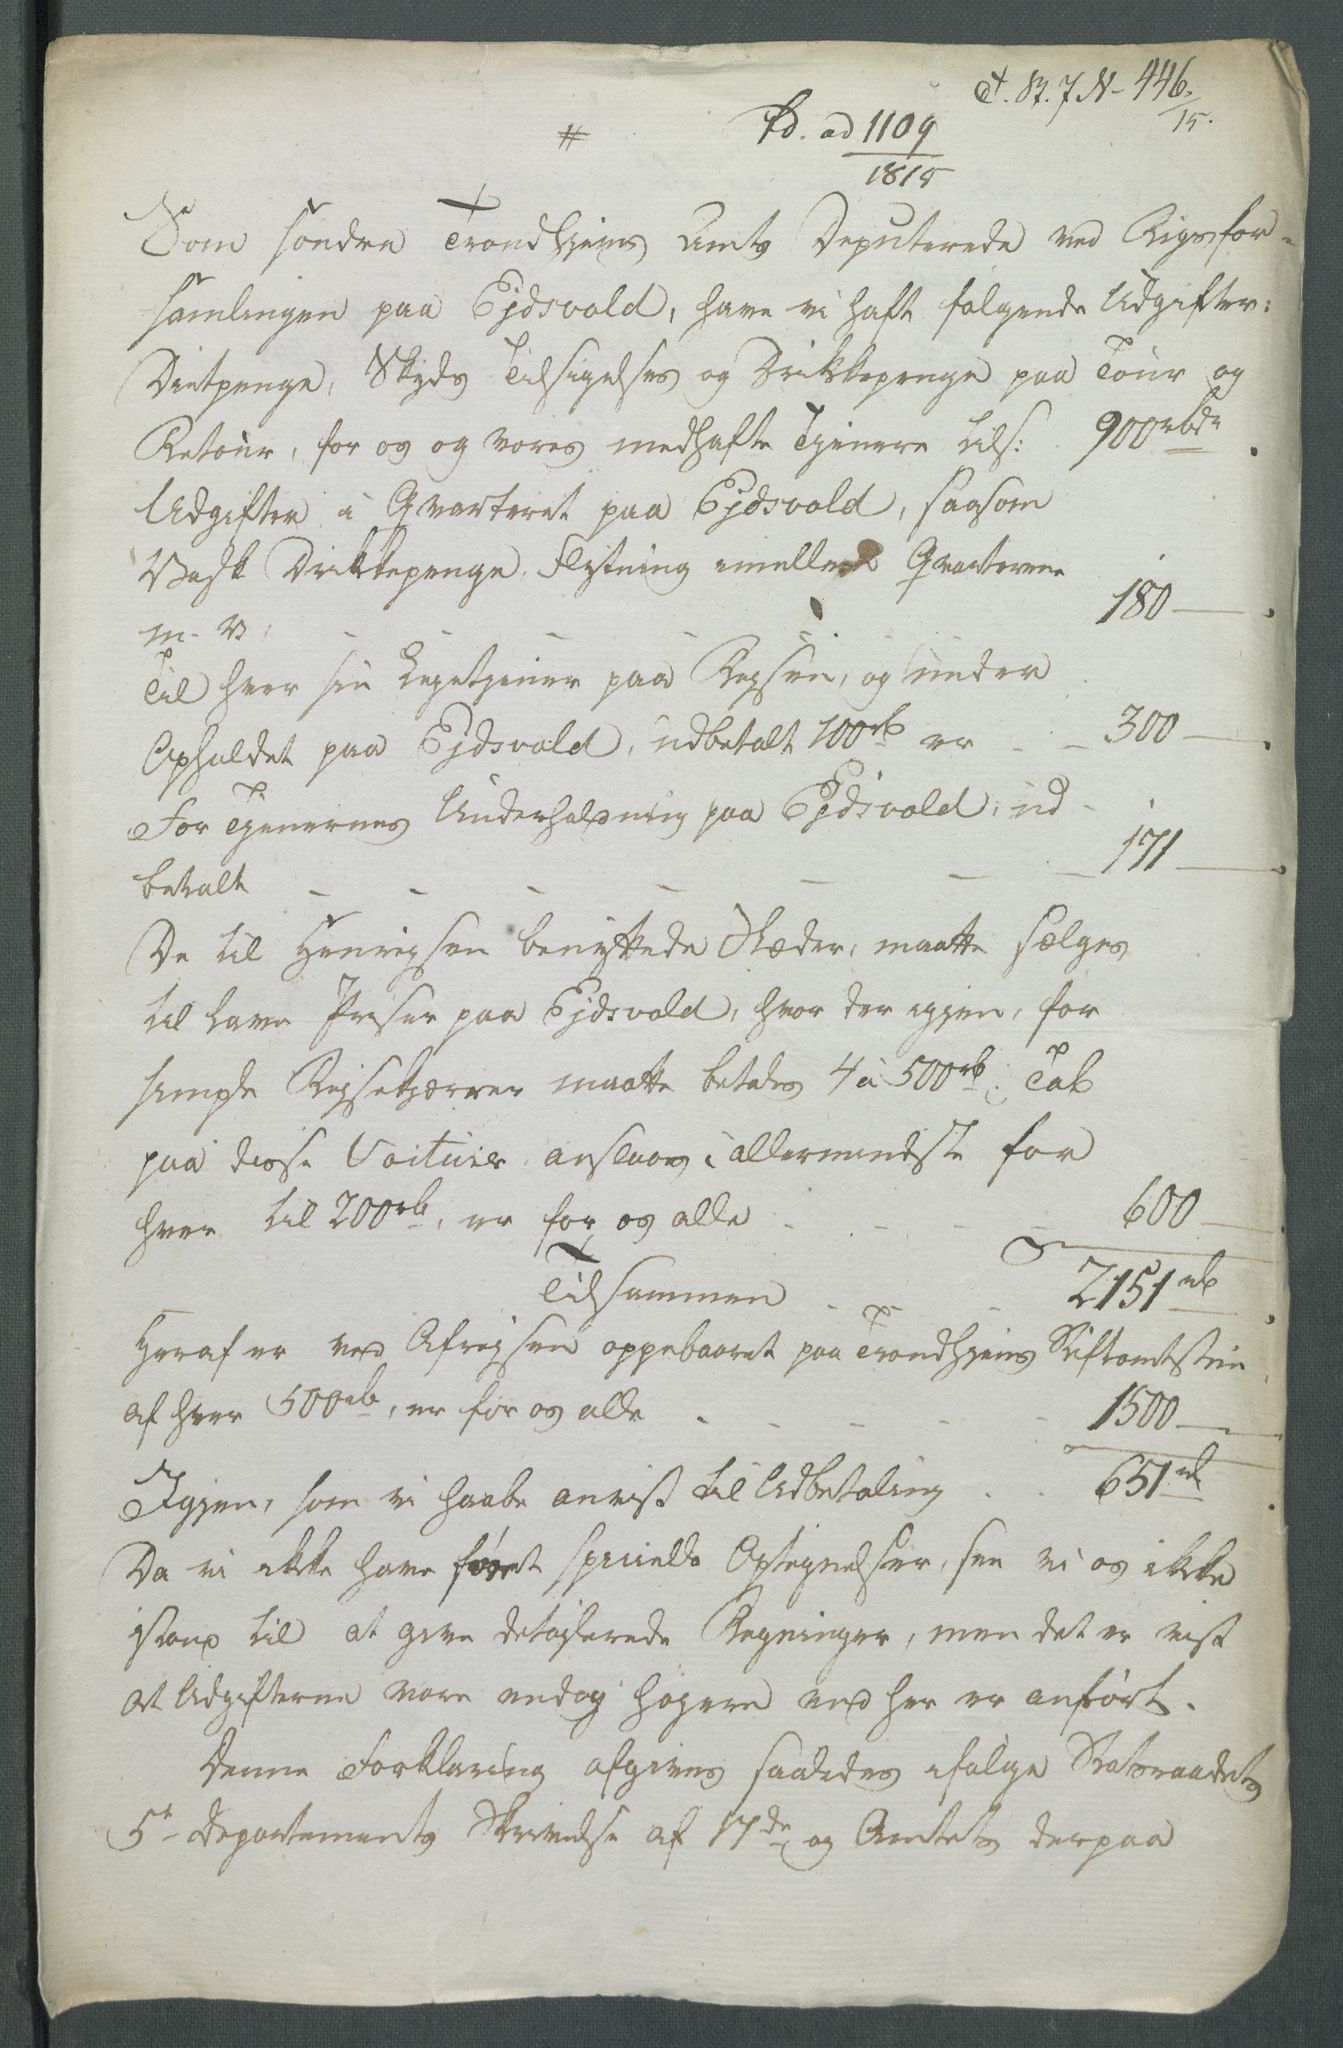 446.
15.
ad 1109
1815
#
Som søndre Trondhjems Amts Deputerede ved Rigsfor-
samlingen paa Ejdsvold, have vi haft følgende Udgifter:
Diætpenge, Skyds Tilsigelses og Drikkepenge paa Tour og
Retour, for os og vores medhafte Tjenere tils: 900 rbdr.
Udgifter i Qvarteret paa Ejdsvold, saasom
Vask Drikkepenge, Flytning imellem Qvarterene
m. v. - - - - 180 —
Til hver sin Lejetjener paa Rejsen, og under
Opholdet paa Ejdsvold, udbetalt 100 rb er - - 300 —
For Tjenernes Underholdning paa Ejdsvold, ud-
betalt - - - - - - - 171 —
De til Henrejsen benyttede Slæder, maatte sælges
til lave Priser paa Ejdsvold, hvor der igjen, for
simple Rejsekjærrer maatte betales 4 à 500 rb; Tab
paa disse Voiturer ansl​aaes i allermindste for
hver til 200 rb, er for os alle - - - - 600 —
Tilsammen - - - 2151 rb
Heraf er ved Afrejsen oppebaaret paa Trondhjems Stiftamtstue
af hver 500 rb, er for os alle - - - - - 1500 —
Igjen, som vi haabe anvist til Udbetaling - - 651 rb.
Da vi ikke have ført specielle Optegnelser, see vi os ikke
istand til at give detaillerede Regninger, men det er vist
at Udgifterne vare endog højere end her er anført.
Denne Forklaring afgives saaledes ifølge Statsraadets
5te Departements Skrivelse af 17de og Amtets derpaa